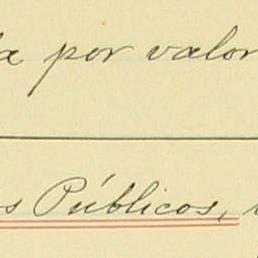 por valor
Públicos,